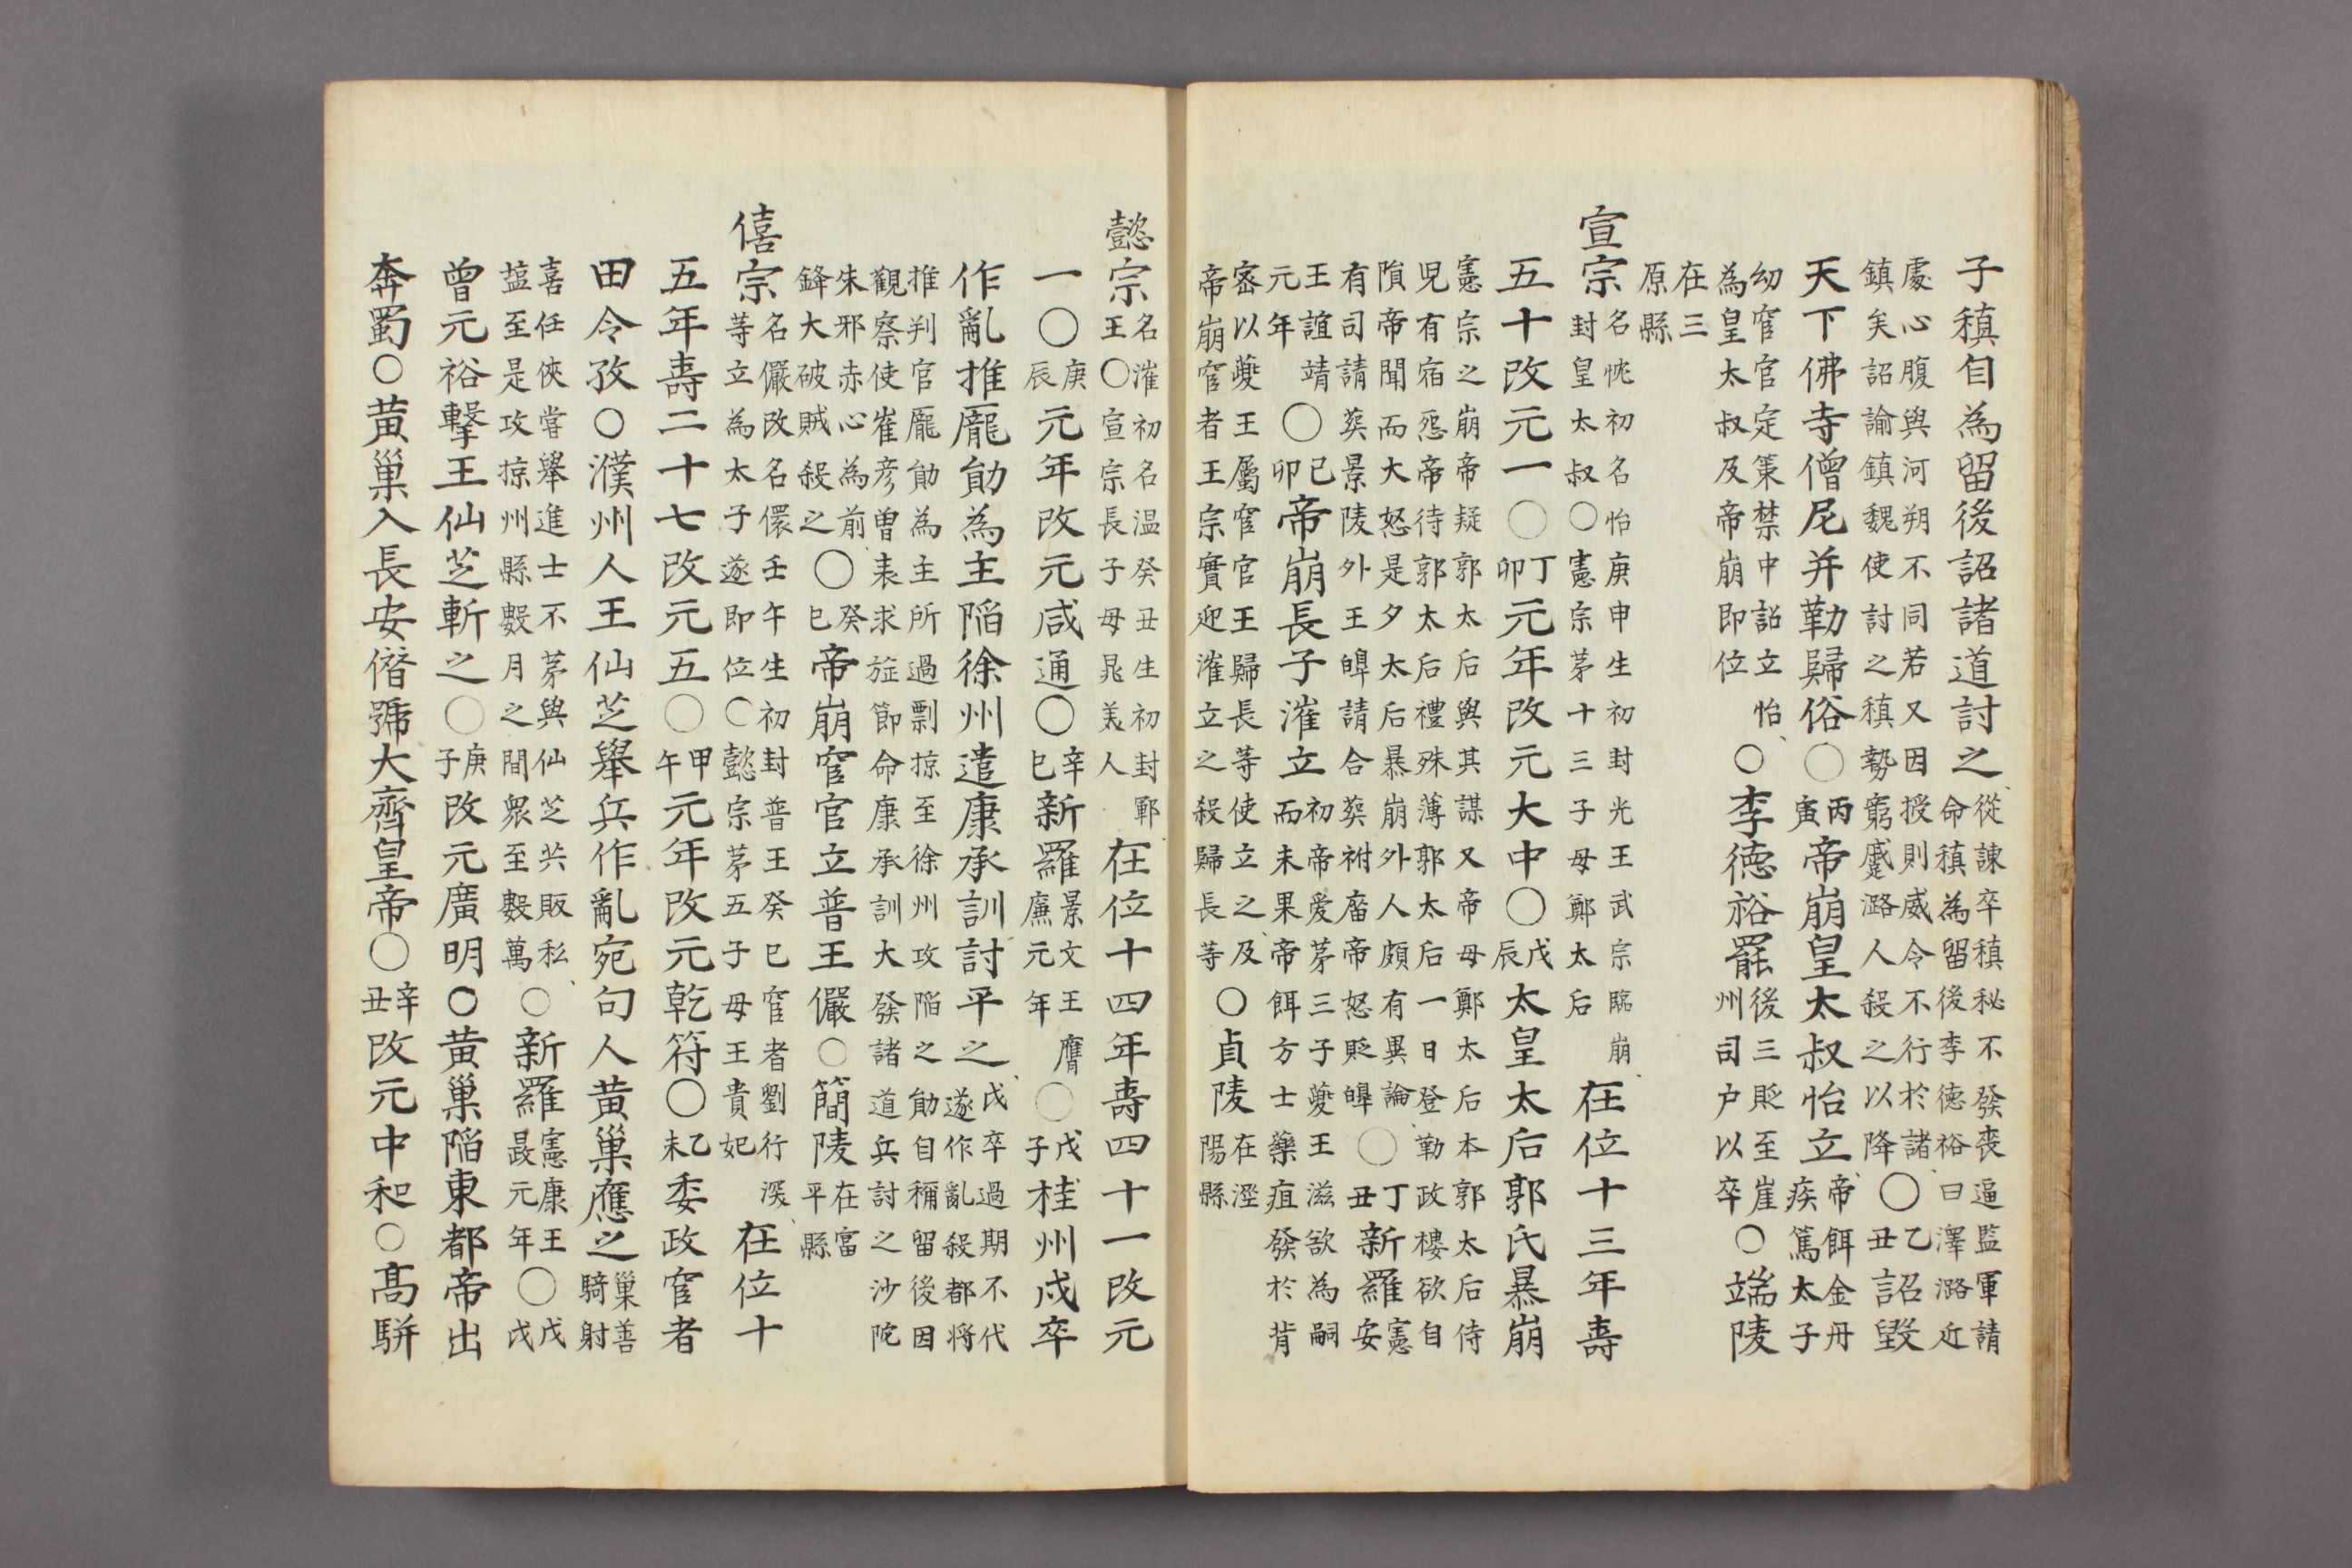 子稹自為留後詔諸道討之從諫卒稹秘不發喪逼監軍請命稹為留後李德裕曰澤潞近
處心腹與河朔不同若又因授則威令不行於諸鎮矣詔諭鎮魏使討之稹勢窮蹙潞人殺之以降○乙丑詔毀
天下佛寺僧尼并勒歸俗○丙寅帝崩皇太叔怡立帝餌金丹疾篤太子
幼宦官定策禁中詔立怡為皇太叔及帝崩即位○李德裕罷後三貶至崖州司户以卒○端陵
在三原縣
宣宗名忱初名怡庚申生初封光王武宗臨崩封皇太叔○憲宗苐十三子母鄭太后在位十三年壽
五十改元一○丁卯元年改元大中○戊辰太皇太后郭氏暴崩
憲宗之崩帝疑郭太后與其謀又帝母鄭太后本郭太后侍児有宿怨帝待郭太后禮殊薄郭太后一日登勤政樓欲自
隕帝聞而大怒是夕太后暴崩外人頗有異論有司請葬景陵外王皥請合葬祔庙帝怒貶皥○丁丑新羅憲安
王誼靖元年○己卯帝崩長子漼立初帝愛苐三子夔王滋欲為嗣而未果帝餌方士藥疽發於背
密以夔王屬宦官王歸長等使立之及帝崩宦者王宗實迎漼立之殺歸長等○貞陵在涇陽縣
懿宗名漼初名温癸丑生初封鄆王○宣宗長子母晁美人在位十四年壽四十一改元
一○庚辰元年改元咸通○辛巳新羅景文王膺廉元年○戊子桂州戍卒
作亂推龐勛為主陷徐州遣康承訓討平之戍卒過期不代遂作亂殺都将
推判官龐勛為主所過剽掠至徐州攻陷之勛自稱留後因觀察使崔彦曽表求旌節命康承訓大發諸道兵討之沙陀
朱邪赤心為前鋒大破賊殺之○癸巳帝崩宦官立普王儼○簡陵在富平縣
僖宗名儼改名儇壬午生初封普王癸巳宦者劉行深等立為太子遂即位○懿宗苐五子母王貴妃在位十
五年壽二十七改元五○甲午元年改元乾符○乙未委政宦者
田令孜○濮州人王仙芝舉兵作亂宛句人黄巢應之巢善騎射
喜任俠甞舉進士不苐與仙芝共販私塩至是攻掠州縣數月之間衆至數萬○新羅憲康王晸元年○戊戌
曾元裕擊王仙芝斬之○庚子改元廣明○黄巢陷東都帝出
奔蜀○黄巢入長安僭號大齊皇帝○辛丑改元中和○髙駢